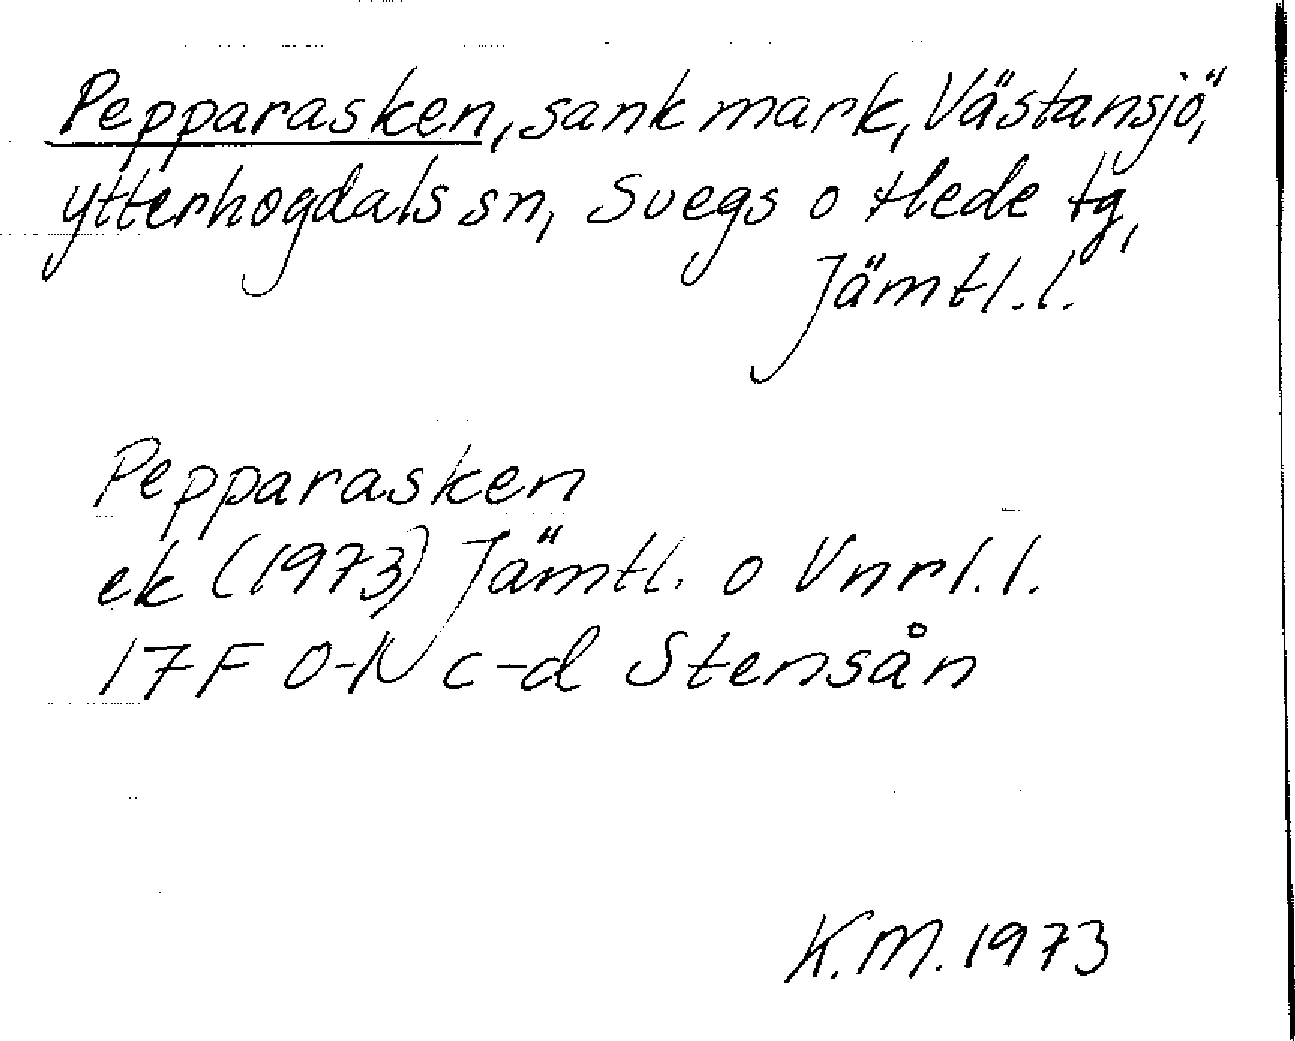 Pepparasken, sank mark, Västansjö,
Ytterhogdals sn, Svegs o Hede tg,
Jämtl.l.
Pepparasken
ek (1973) Jämtl. o Vnrl.l.
17F O-N c-d Stensån
K.M. 1973